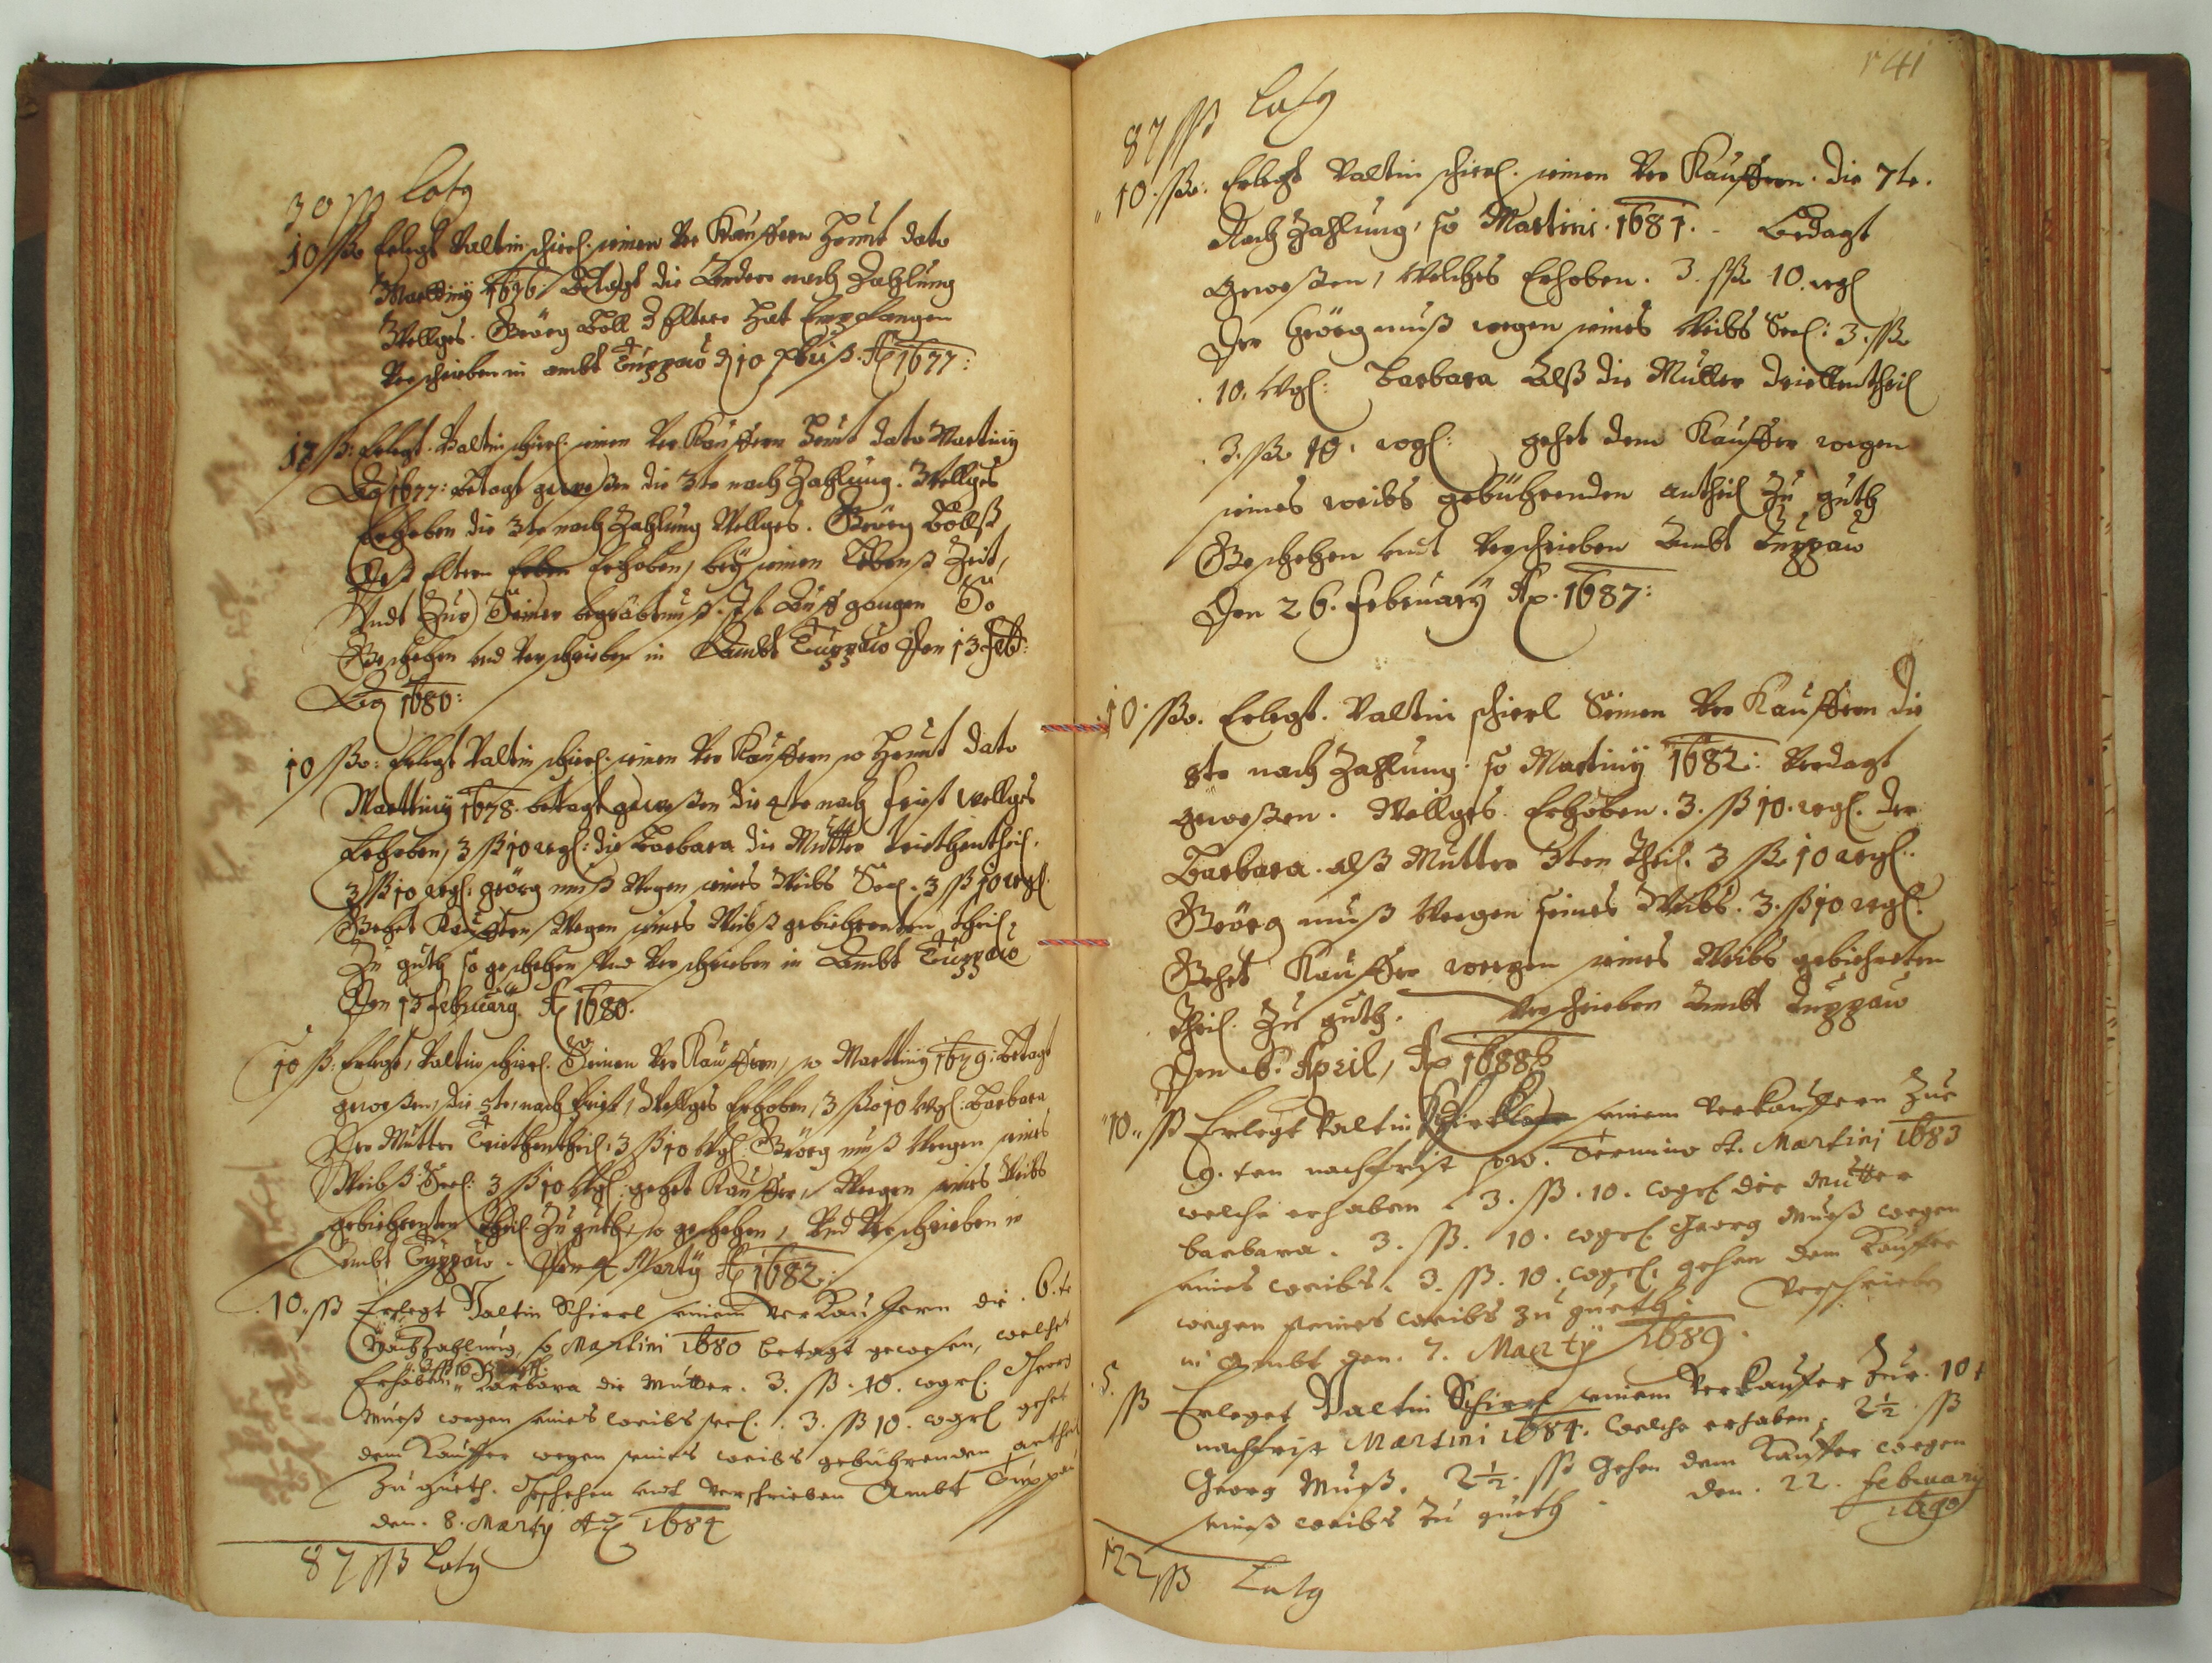 30 ß Latg
10 ßo Erlegt Valtin Schierl seinen Ver Kauffern Heunt dato
Marttiny 1676: Betagt die Andere nach Zahlung
Wellges Geörg Böll d Eltere Hat Empfangen
Verschrieben in ambt Tuppaw d 10 Ao 1677:
17 ß: Erlegt Valtin Schierl seinen Ver Kauffern Heunt dato Martiny
Ao 1677: betagt geweßen die 3te nach Zahlung. Wellges
Erhoben die 3te nach Zahlung Wellges. Geörg Böllß
Deß Eltern Erben Erhoben, beÿ seinen Lebenß Zeit,
Undt Zur Seiner begräbtnuß ist Auff gangen So
Geschehen und Verschrieben in Ambt Tuppaw Den 13 Feb:
Ao 1680:
10 ßo: Erlegt Valtin Schierl seinen Ver Kauffern so Heunt dato
Marttiny 1678. betagt geweßen die 4te nach frist wellges
Erhoben, 3 ß 10 wgl: die Barbara die Mutter dritthentheil.
3 ß 10 wgl: geörg muß Wegen seines Weibs Seel. 3 ß 10 wgl.
Gehet Kauffern Wegen seines Weibß gebiehrenten theil
Zu guth so geschehen Und Verschrieben in Ambt Tuppaw
Den 13 February Ao 1680.
10 ß: Erlegt, Valtin Schierl. Seinen Ver Kauffern, so Marttiny 1679: betagt
geweßen, die 5te, nach frist, Wellges Erhoben, 3 ßo 10 Wgl. Barbara
Der Mutter dritthentheil, 3 ß 10 Wgl. Geörg muß Wegen seines
Weibß Seel: 3 ß 10 Wgl. gehet Kauffer, Wegen seines Weibs
gebiehrenten theil Zu guth, so geschehen, Und Verschrieben in
Ambt Tuppaw. Den 4 Marty Ao 1682:
10 ß Erlegt Valtin Schierl seinem Verkauffern die 6.te
Nachzahlung, so Martini 1680 betagt gewesen, welchet
Erhoben Barbara die Mutter. 3. ß. 10. wgrl. Georg
Mueß wegen seines weibs seel. 3. ß 10. wgrl gehet
dem Kauffer wegen seines weibs gebührenden antheil
Zu gueth. Geschehen undt Verschrieben Ambt Tuppau
den. 8. Marty Ao 1684
87 ß Latg
141
87 ß Latg
10. ßo. Erlegt Valtin Schierl. seinen Ver Kauffern. die 7te.
Nach Zahlung, so Martini. 1681. Bedagt
Geweßen, Welches Erhoben. 3. ßo 10. wgl
Der Geörg muß wegen seines Weibs Seel: 3. ßo
10. Wgl: Barbara Alß die Mutter driettentheil
3. ßo 10. wgl: gehet dem Kauffer wegen
seines weibs gebührenden antheil Zu guth
Geschehen undt Verschrieben Ambt Tuppaw
Den 26. February Ao. 1687:
10 ßo. Erlegt. Valtin Schierl Seinen Ver Kauffern die
8te nach Zahlung so Martiny 1682: Verdagt
geweßen. Wellges Erhoben. 3. ß 10. wgl. der
Barbara. alß Mutter 3ten Theil. 3 ßo 10 wgl.
Geörg muß Wegen seines Weibs. 3. ß 10 wgl.
Gehet Kauffer wegen seines Weibs gebiehreten
theil. Zu guth. Verschrieben Ambt Tuppaw
Den 6. April, Ao 1688
10 ß Erlegt Valtin seinem Verkauffern Zur
9. ten nachfrist pro. Termino St. Martini 1683
welche erhaben 3. ß. 10. wgrl die Mutter
barbara. 3. ß. 10. wgrl. Georg Mueß wegen
seines weibs. 3. ß. 10. wgrl. gehen dem Kauffer
wegen seines weibs zu gueth. Verschrieben
in Ambt den. 7. Marty 1689.
5. ß Erleget Valtin Schierl seinem Verkauffer Zur. 10 t
nachfrist Martini 1684. welche erhaben 2½ ß
Georg Mueß. 2½. ß Gehen dem Kauffer wegen
seineß weibs zu gueth den. 22. February
1690
122 ß Latg